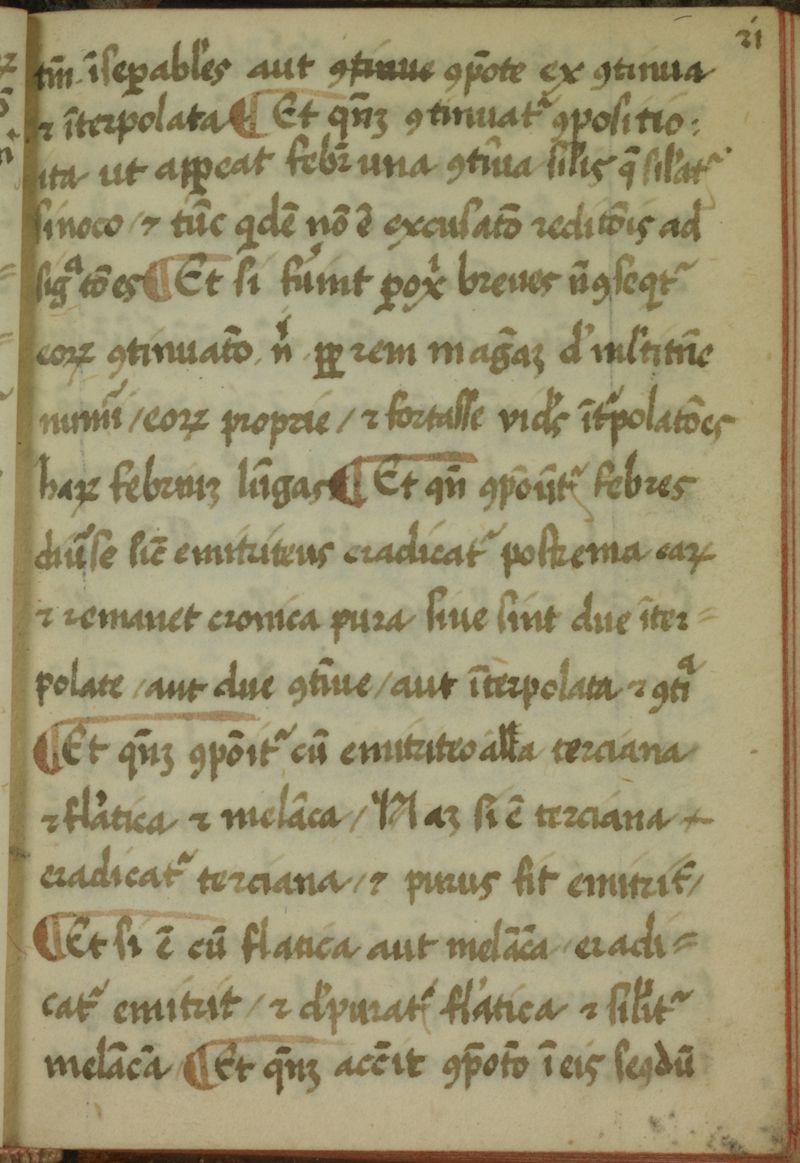 21
tm̄ īseꝑables aut ꝯtinue ꝯp̄ote ex ꝯtinua
⁊ īterpolata ¶ Et qn̄ꝫ ꝯtinuatᷣ ꝯpositio:
ita ut appeat febr̄ una ꝯtīua silis q̄ silatᷣ
sinoco / ⁊ tūc qdē nō ē excusatō reditōis ad
sigᵃtōes ¶ Et si fuīnt ꝑoxⁱ breues ū ꝯseqtᷣ
eoꝝ ꝯtinuatō nⁱ ꝓꝑ rem magāꝫ
/ eoꝝ proprie / ⁊ fortasse vidēs ītᷣpolatōes
haꝝ febriuꝫ lūgas ¶ Et qn̄ ꝯpōūtᷣ febres
diūse sic̄ emitriteus eradicatᷣ postrema eaꝝ
⁊ remanet cronica pura siue sint due īter=
polate / aut due ꝯtīue / aut īterpolata ⁊ ꝯtiᵃ
¶ Et qn̄ꝫ ꝯpōitᷣ cū emitriteo alia terciana
⁊ fl̄atica ⁊ melāca / Naꝫ si ē terciana
eradicatᷣ terciana / ⁊ purus fit emitrit̄ /
¶ Et si ē cū flatica aut melācā eradi=
catᷣ emitrit̄ / ⁊ dꝑuratᷣ fl̄atica ⁊ sil̄itᷣ
melācā ¶ Et qn̄ꝫ accīt ꝯp̄otō ī eis seꝯdū